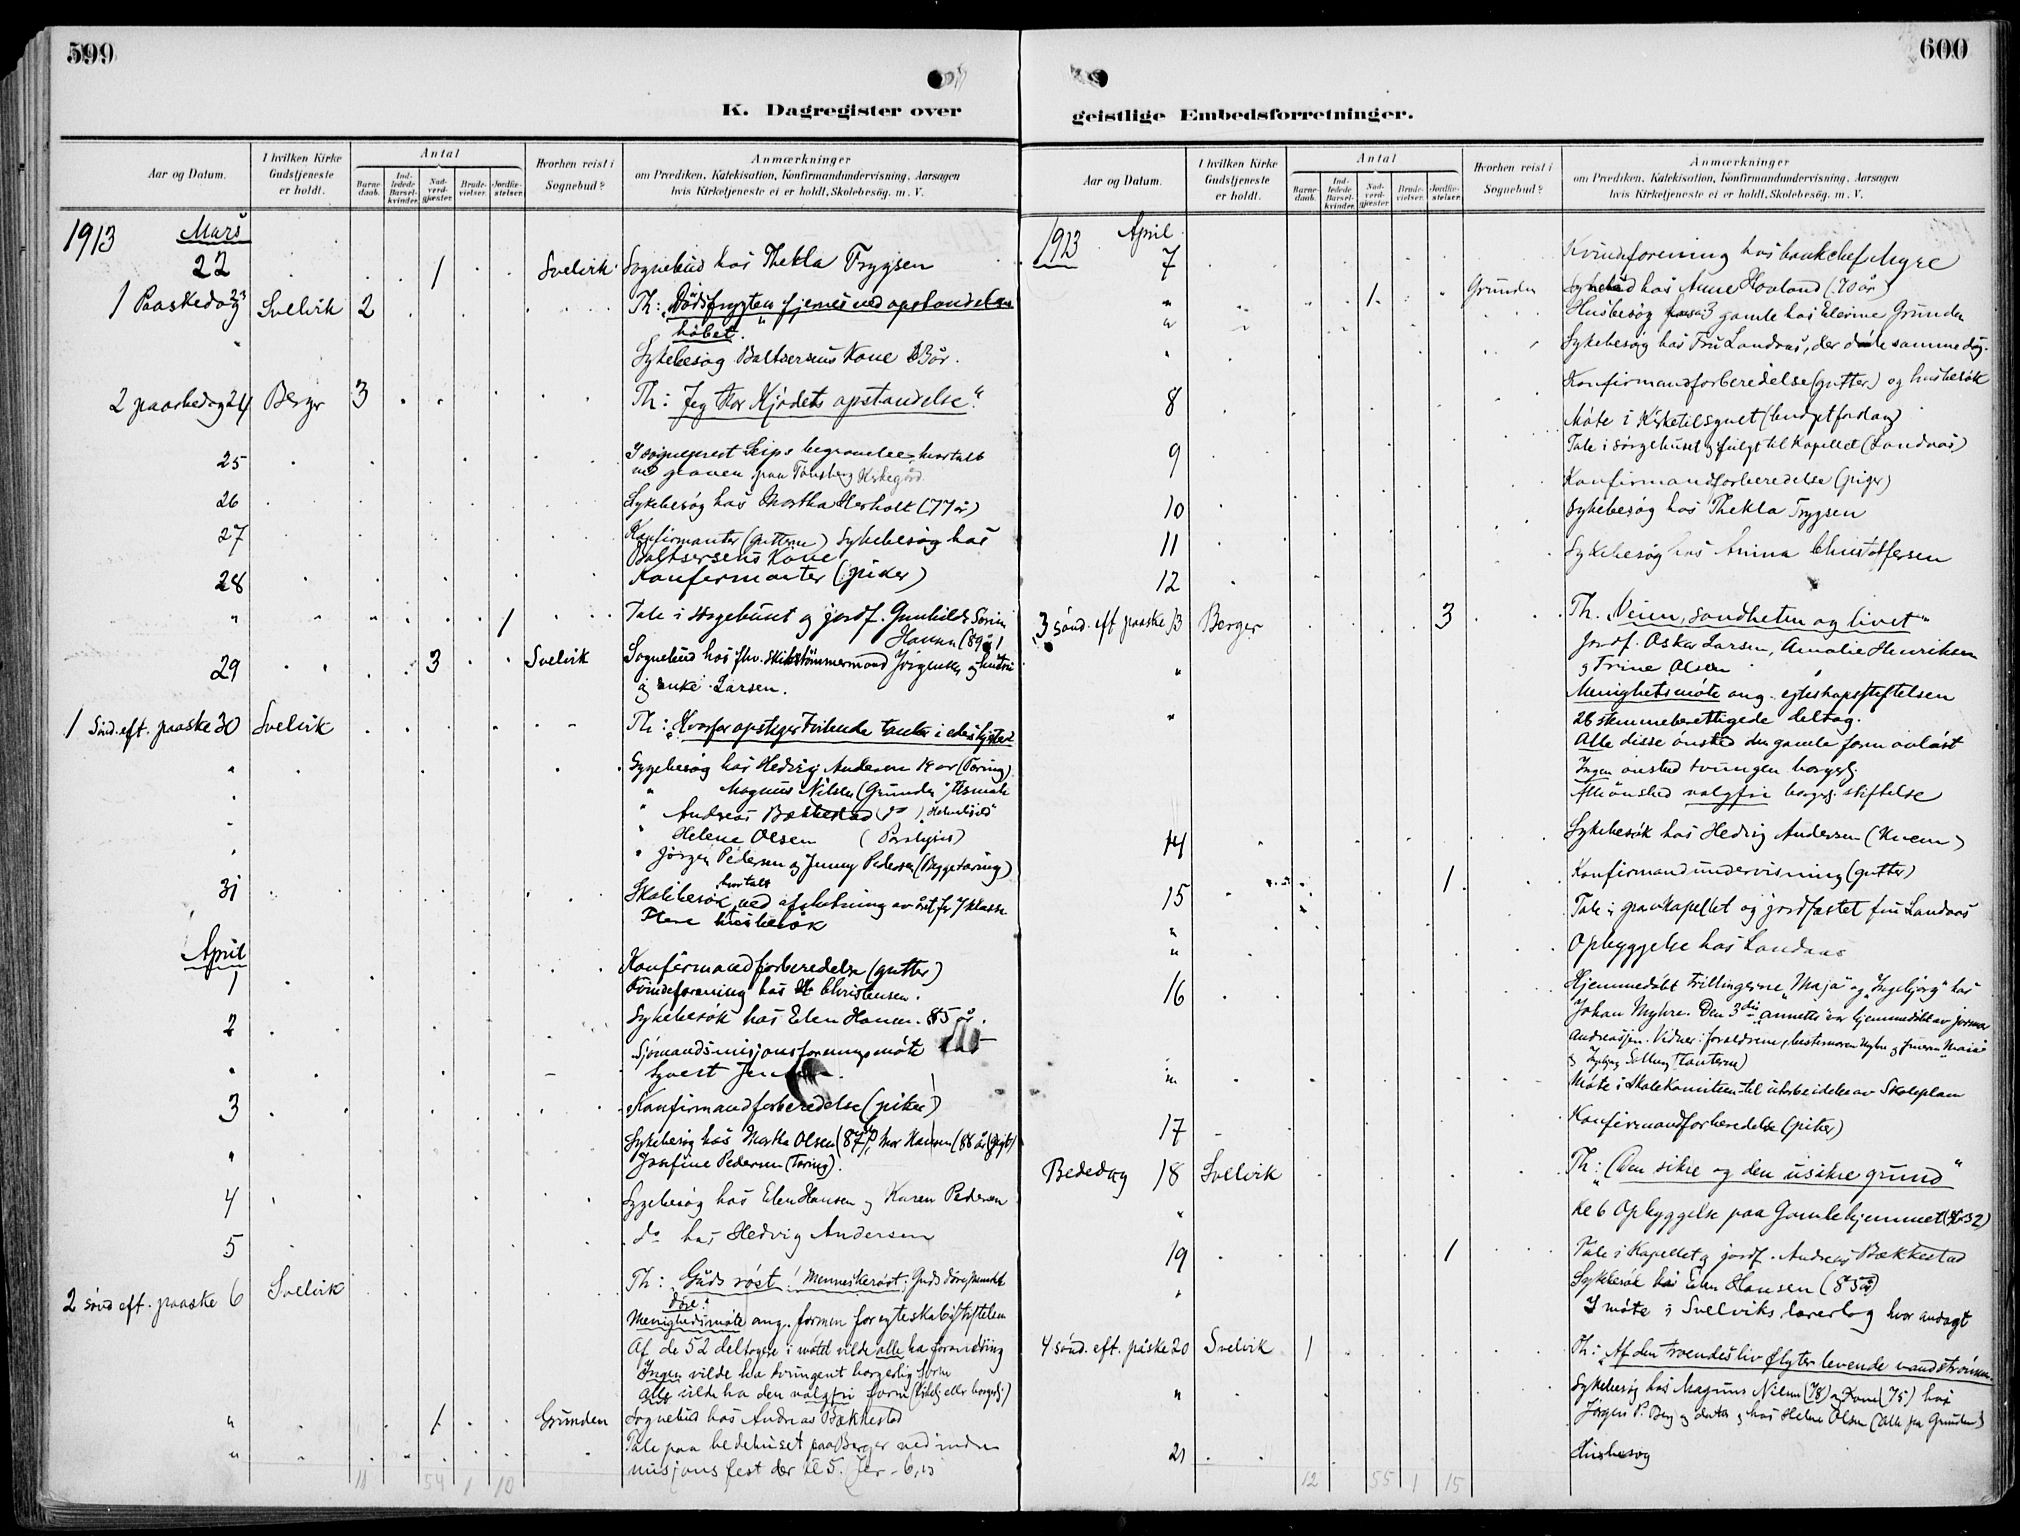 599
K. Dagregister over
Aar og Datum.
I hvilken Kirke Gudstjeneste er holdt.
Antal
Barnedaab.
Indledede Barselkvinder.
Nadverdgjæster.
Brudevielser.
Jordfæstelser.
Hvorhen reist i Sognebud?
Anmærkninger
om Prædiken, Katekisation, Konfirmandundervisning, Aarsagen
hvis Kirketjeneste ei er holdt, Skolebesøg. m. V.
1913 Mars
22 1 Svelvik Sognebud hos Thekla Trygsen
1 Paaskedag 23 Svelvik 2 Th: "Dödsfrygten fjernes ved opstandelses
håbet".
Sykebesøg Baltsersens Kone
2 paaskedag 24 Berger 3 Th: "Jeg tror Kjødets opstandelse".
25 I sogneprest begravelse
ved graven paa Tønsberg Kirkegård
26 Sykebesøg hos Martha Herholt (77 år)
27 Konfirmanter (gutterne) Sykebesøg hos
Baltsersens Kone
28 Konfirmanter (piker)
" 1 Tale i sørgehuset og jordf. Gunhilde Sørine
Hansen (89 år)
29 3 Svelvik Sognebud hos fhv. skibstømmermand Jørgensen og hustru
og enke Larsen.
1 Sönd. eft. paaske 30 Svelvik Th: "Hvorfor opstiger tvilende tanker i eders hjerter
" Sygebesøg hos Hedvig Andersen 19 år (Tæring)
" Magnus Nilsen (Grunden) Astmah
" Andreas Bækkestad (do)
" Helene Olsen (Paralysis)
" Jörgen Pedersen og Jenny Pedersen (Begge tæring)
31 Skolebesøk hvortalt ved afslutning av året for 7 klasse
Flere husbesøk
April
1 Konfirmandforberedelse (gutter)
Kvindeforening hos Christensen.
2 Sykebesøk hos Elen Hansen. 85 år.
Sjømandsmisjonsforeningsmöte hos
" Syvert Jensen.
3 Konfirmandforberedelse (piker)
Sykebesøg hos Martha Olsen (87), Mor Hansen (88 år (Gigt)
" Josefine Pedersen (Tæring).
4 Sygebesøg hos Elen Hansen og Karen Pedersen
5 do hos Hedvig Andersen
2 sönd eft. paaske 6 Svelvik Th: "Guds röst! Menneskeröst. Guds dörg
döre."
Menighedsmöte ang. formen for egteskabsstiftelsen
Af de 52 deltagere i mötet vilde alle ha forandring
Ingen vilde ha tvungent borgerlig form
Alle vilde ha den valgfri form (Kirkelig eller borgerl.)
" 1 Grunden Sognebud hos Andreas Bækkestad
" Tale paa bedehuset paa Berger ved indre
misjons fest der kl 5. Jer. 6,
11 54 1 10
600
geistlige Embedsforretninger.
Aar og Datum.
I hvilken Kirke Gudstjeneste er holdt.
Antal
Barnedaab.
Indledede Barselkvinder.
Nadverdgjæster.
Brudevielser.
Jordfæstelser.
Hvorhen reist i Sognebud?
Anmærkninger
om Prædiken, Katekisation, Konfirmandundervisning, Aarsagen
hvis Kirketjeneste ei er holdt, Skolebesøg. m. V.
1913 April
7 Kvindeforening hos bankchef Myre
" 1 Grunden Sognebud hos Anne Hovland (70 år)
" Husbesøg hos 3 gamle hos Elerine Grunden
" Sykebesøg hos Fru Landaas, der døde samme dag.
8 Konfirmandforberedelse (gutter) og husbesøk
Möte i Kirketilsynet (budgetforslag)
9 Tale i Sörgehuset og fulgt til Kapellet (Landaas)
10 Konfirmandforberedelse (piger)
11 Sykebesøg hos Thekla Trygsen
12 Sykebesøg hos Anna Christoffersen
3 sönd. eft paaske 13 Berger 3 Th. "Veien, sandheten og livet"
Jordf. Oskar Larsen, Amalie Henriksen
" og Trine Olsen
Menighetsmöte ang. egteskapsstiftelsen
" 26 stemmeberettigede deltog.
Alle disse önsked den gamle form avløst
Ingen önsked tvungen borgerl.
Alle önsked valgfri borgerl. stiftelse
14 Sykebesök hos Hedvig Andersen
15 1 Konfirmandundervisning (gutter)
Tale i gravkapellet og jordfæstet fru Landaas
" Opbyggelse hos Landaas
16 Hjemmedöbt trillingerne "Maja" og "Ingebjørg" hos
Johan Myhre. Den 3die "Annette" var hjemmedöbt av jormor
Andreassen. Vidner: forældrene, bestemoren Myhre og
Solberg (tanterne)
" Möte i Skolekomiteen til utarbeidelse av Skoleplan
17 Konfirmandforberedelse (piker)
Bededag 18 Svelvik Th: "Den sikre og den usikre grund"
" Kl 6 Opbyggelse paa Gamlehjemmet
19 1 Tale i Kapellet og jordf. Andreas Bækkestad
" Sykebesøk hos Elen Hansen (85 år)
I möte i Svelviks lærerlag hvor andagt
4 sönd. eft. påske 20 Svelvik 1 Th: "Af den troendes liv flyter levende vandströmme.
" Sykebesøg hos Magnus Nilsen (78) og Kone (75) hos
Jörgen P. Berg og datter og hos Helene Olsen (alle fra Grunden)
21 Husbesøg
12 55 1 15